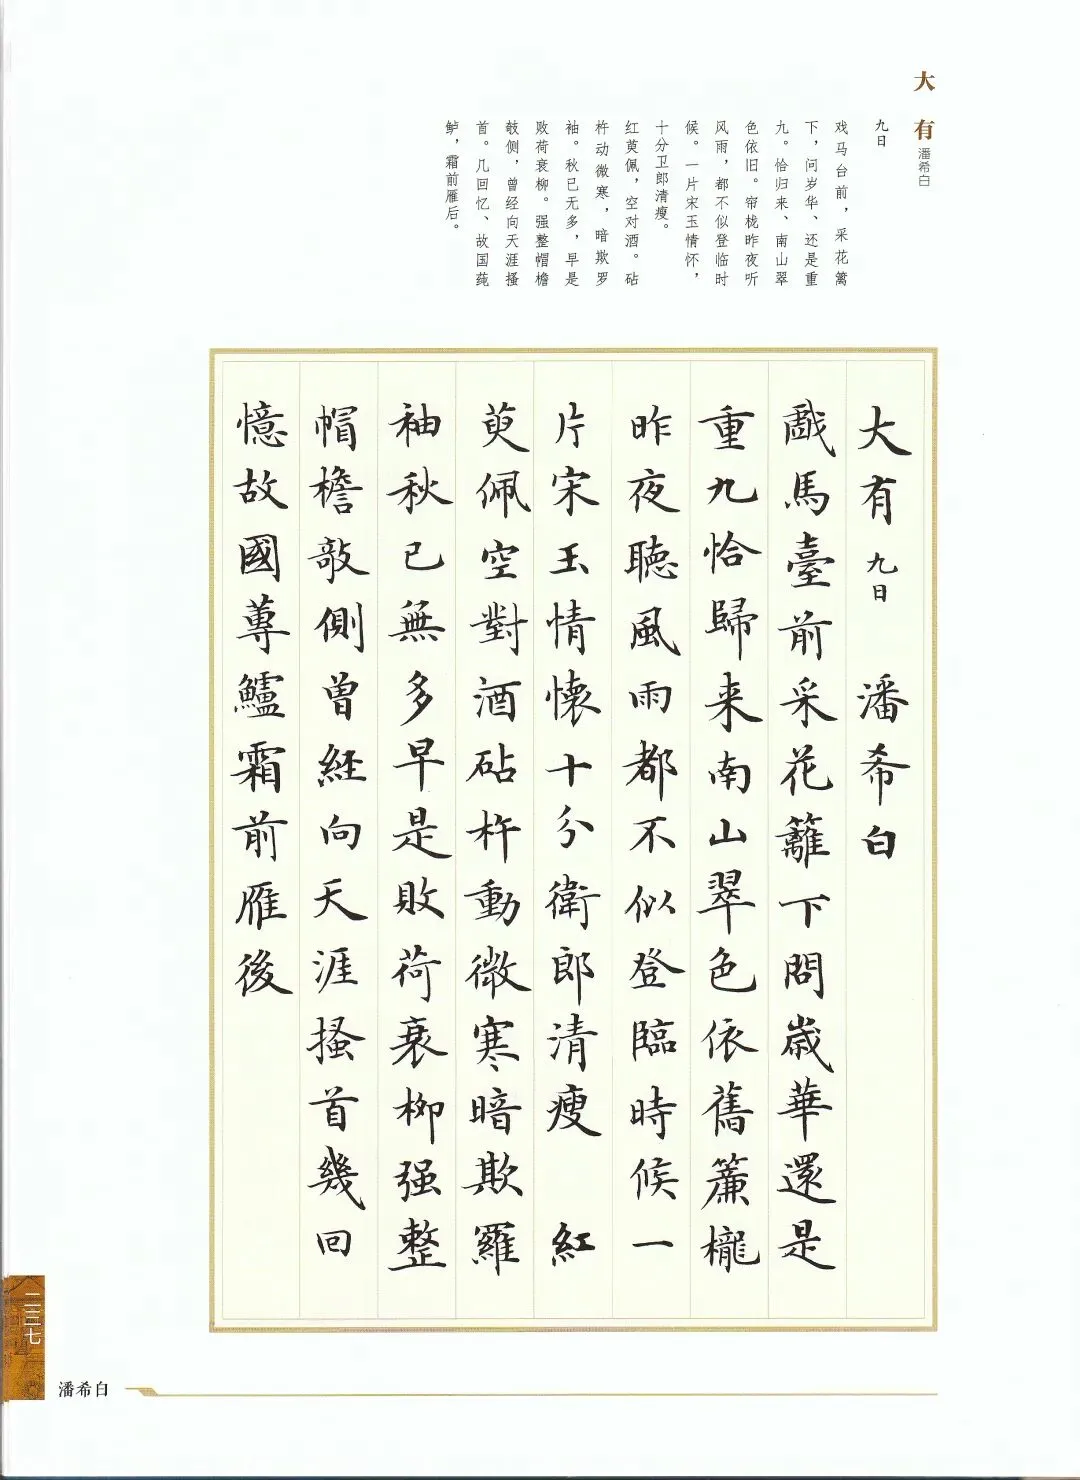 大有
潘希白
九日
戏马台前，采花篱
下，问岁华、还是重
九。恰归来、南山翠
色依旧。帘栊昨夜听
风雨，都不似登临时
候。一片宋玉情怀，
十分卫郎清瘦。
红萸佩，空对酒。砧
杵动微寒，暗欺罗
袖。秋已无多，早是
败荷衰柳。强整帽檐
欹侧，曾经向天涯搔
首。几回忆、故国莼
鲈，霜前雁后。
大有 九日 潘希白
戲馬臺前采花籬下問歲華還是
重九恰歸来南山翠色依舊簾櫳
昨夜聽風雨都不似登臨時候一
片宋玉情懷十分衛郎清瘦 紅
萸佩空對酒砧杵動微寒暗欺羅
袖秋已無多早是敗荷衰柳强整
帽檐敧側曾経向天涯搔首幾回
憶故國蓴鱸霜前雁後
二三七
潘希白